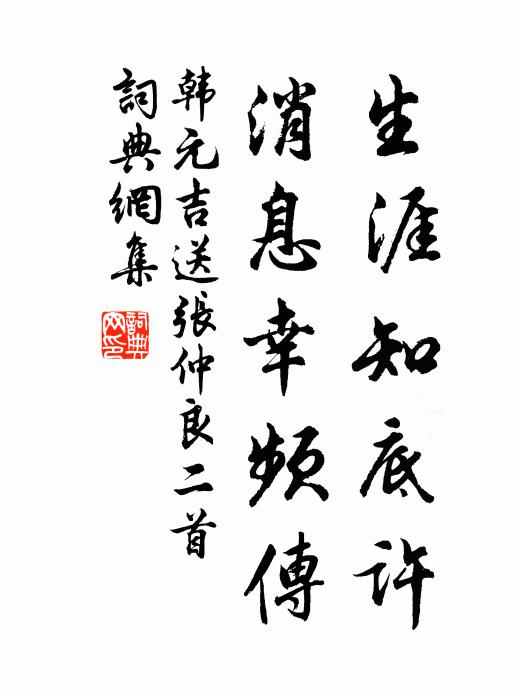 生涯知底许
消息幸頻傳
韩元吉送張仲良二首
詞典網集
詞典网印